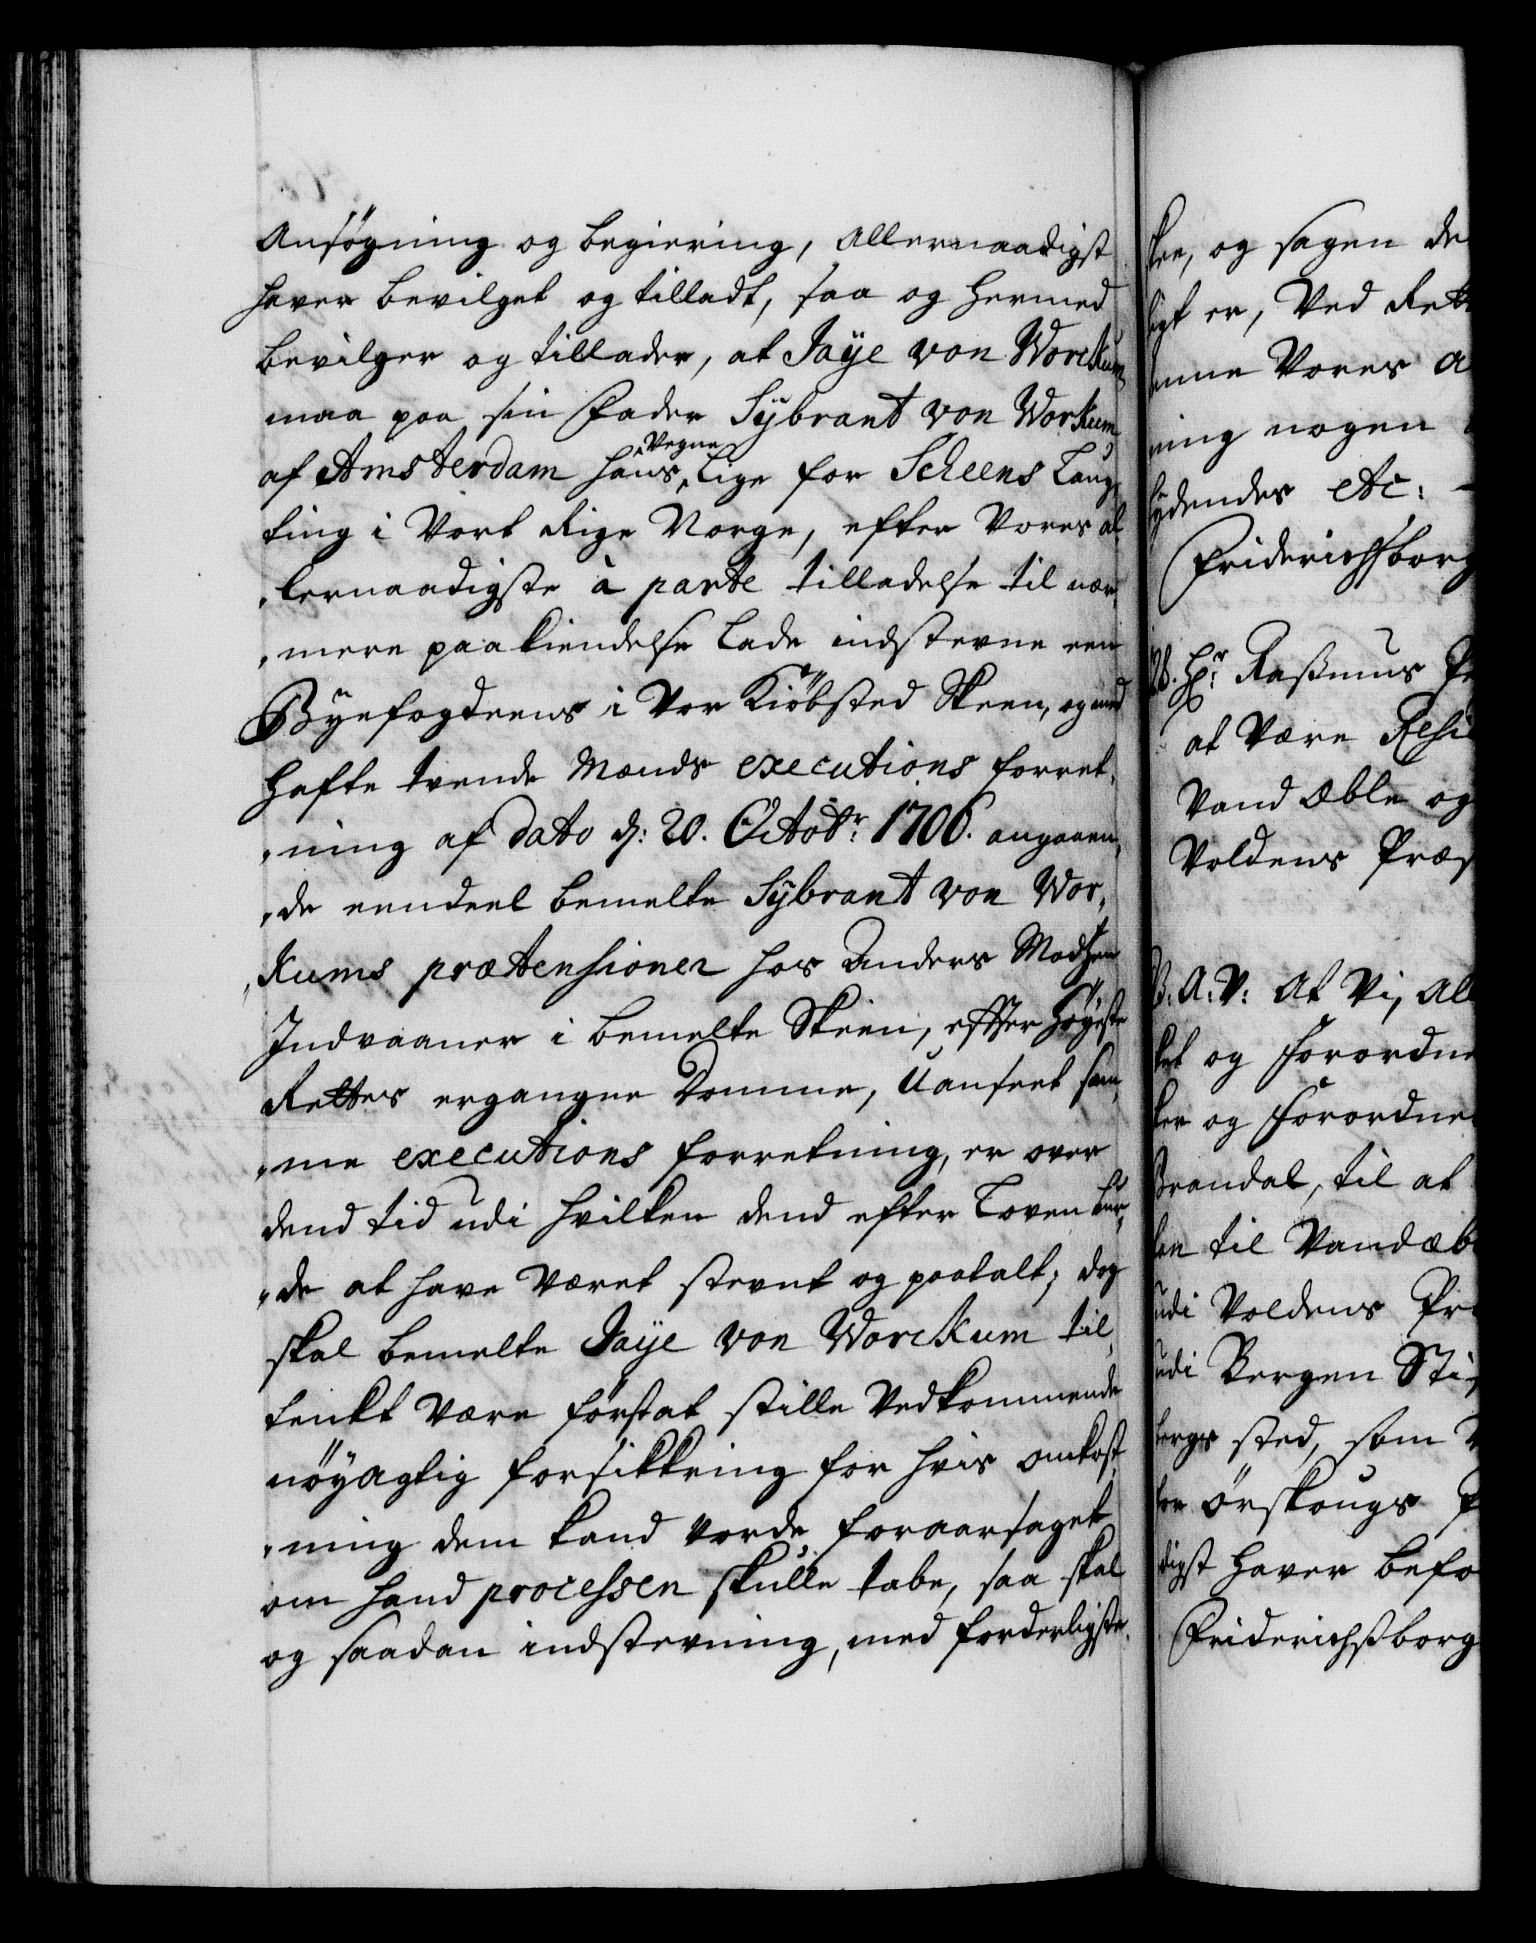 Ansögning og begiering, allernaadigst
hafver bevilget og tilladt, saa og hermed
bevilger og tillader, at Jaÿe von Worckum
maa paa sin Fader Sÿbrant von Workum
af Amsterdam hans Vegne, lige for Scheens Laug-
ting i Vort Rige Norge, efter Vores al
„lernaadigste à parte tilladelse til nær„
„mere paakiendelse lade indstevne een
Bÿefogdeens i Vor Kiöbsted Skeen, og med
hafte tvende Mænds executions forret„
„ning af dato d: 20. Octobr: 1706. angaaen„
„de eendeel bemelte Sÿbrant von Wor„
„kums prætensioner hos Anders Madsen
Indvaaner i bemelte Skien, effter Höyeste
Rettes ergangne Domme, Uanseet sam„
„me executions forretning, er over
dend tid udi hvilken dend efter Loven bur„
„de at have været stevnt og paatalt; dog
skal bemelte Jaÿe von Worckum til„
tenkt være förstat stille Vedkommende
nöyagtig forsikkring for hvis omkost
„ning dem kand vorde foraarsaget
om hand processen skulle tabe, saa skal
og saadan indstevning, med forderligste
og sagen de
er, Ved Rett
Vores A
ning nogen
etc: –
Friderichsborg
Hr: Rasmus Pe
at være Resi
Vand Æble og
Voldens Præs
B: A: V: At Vi, All
og forordne
og forordne
til at
til Vandæb
udi Voldens Pr
udi Bergen Sti
sted, som
Örskougs P
haver befa
Friderichsborg